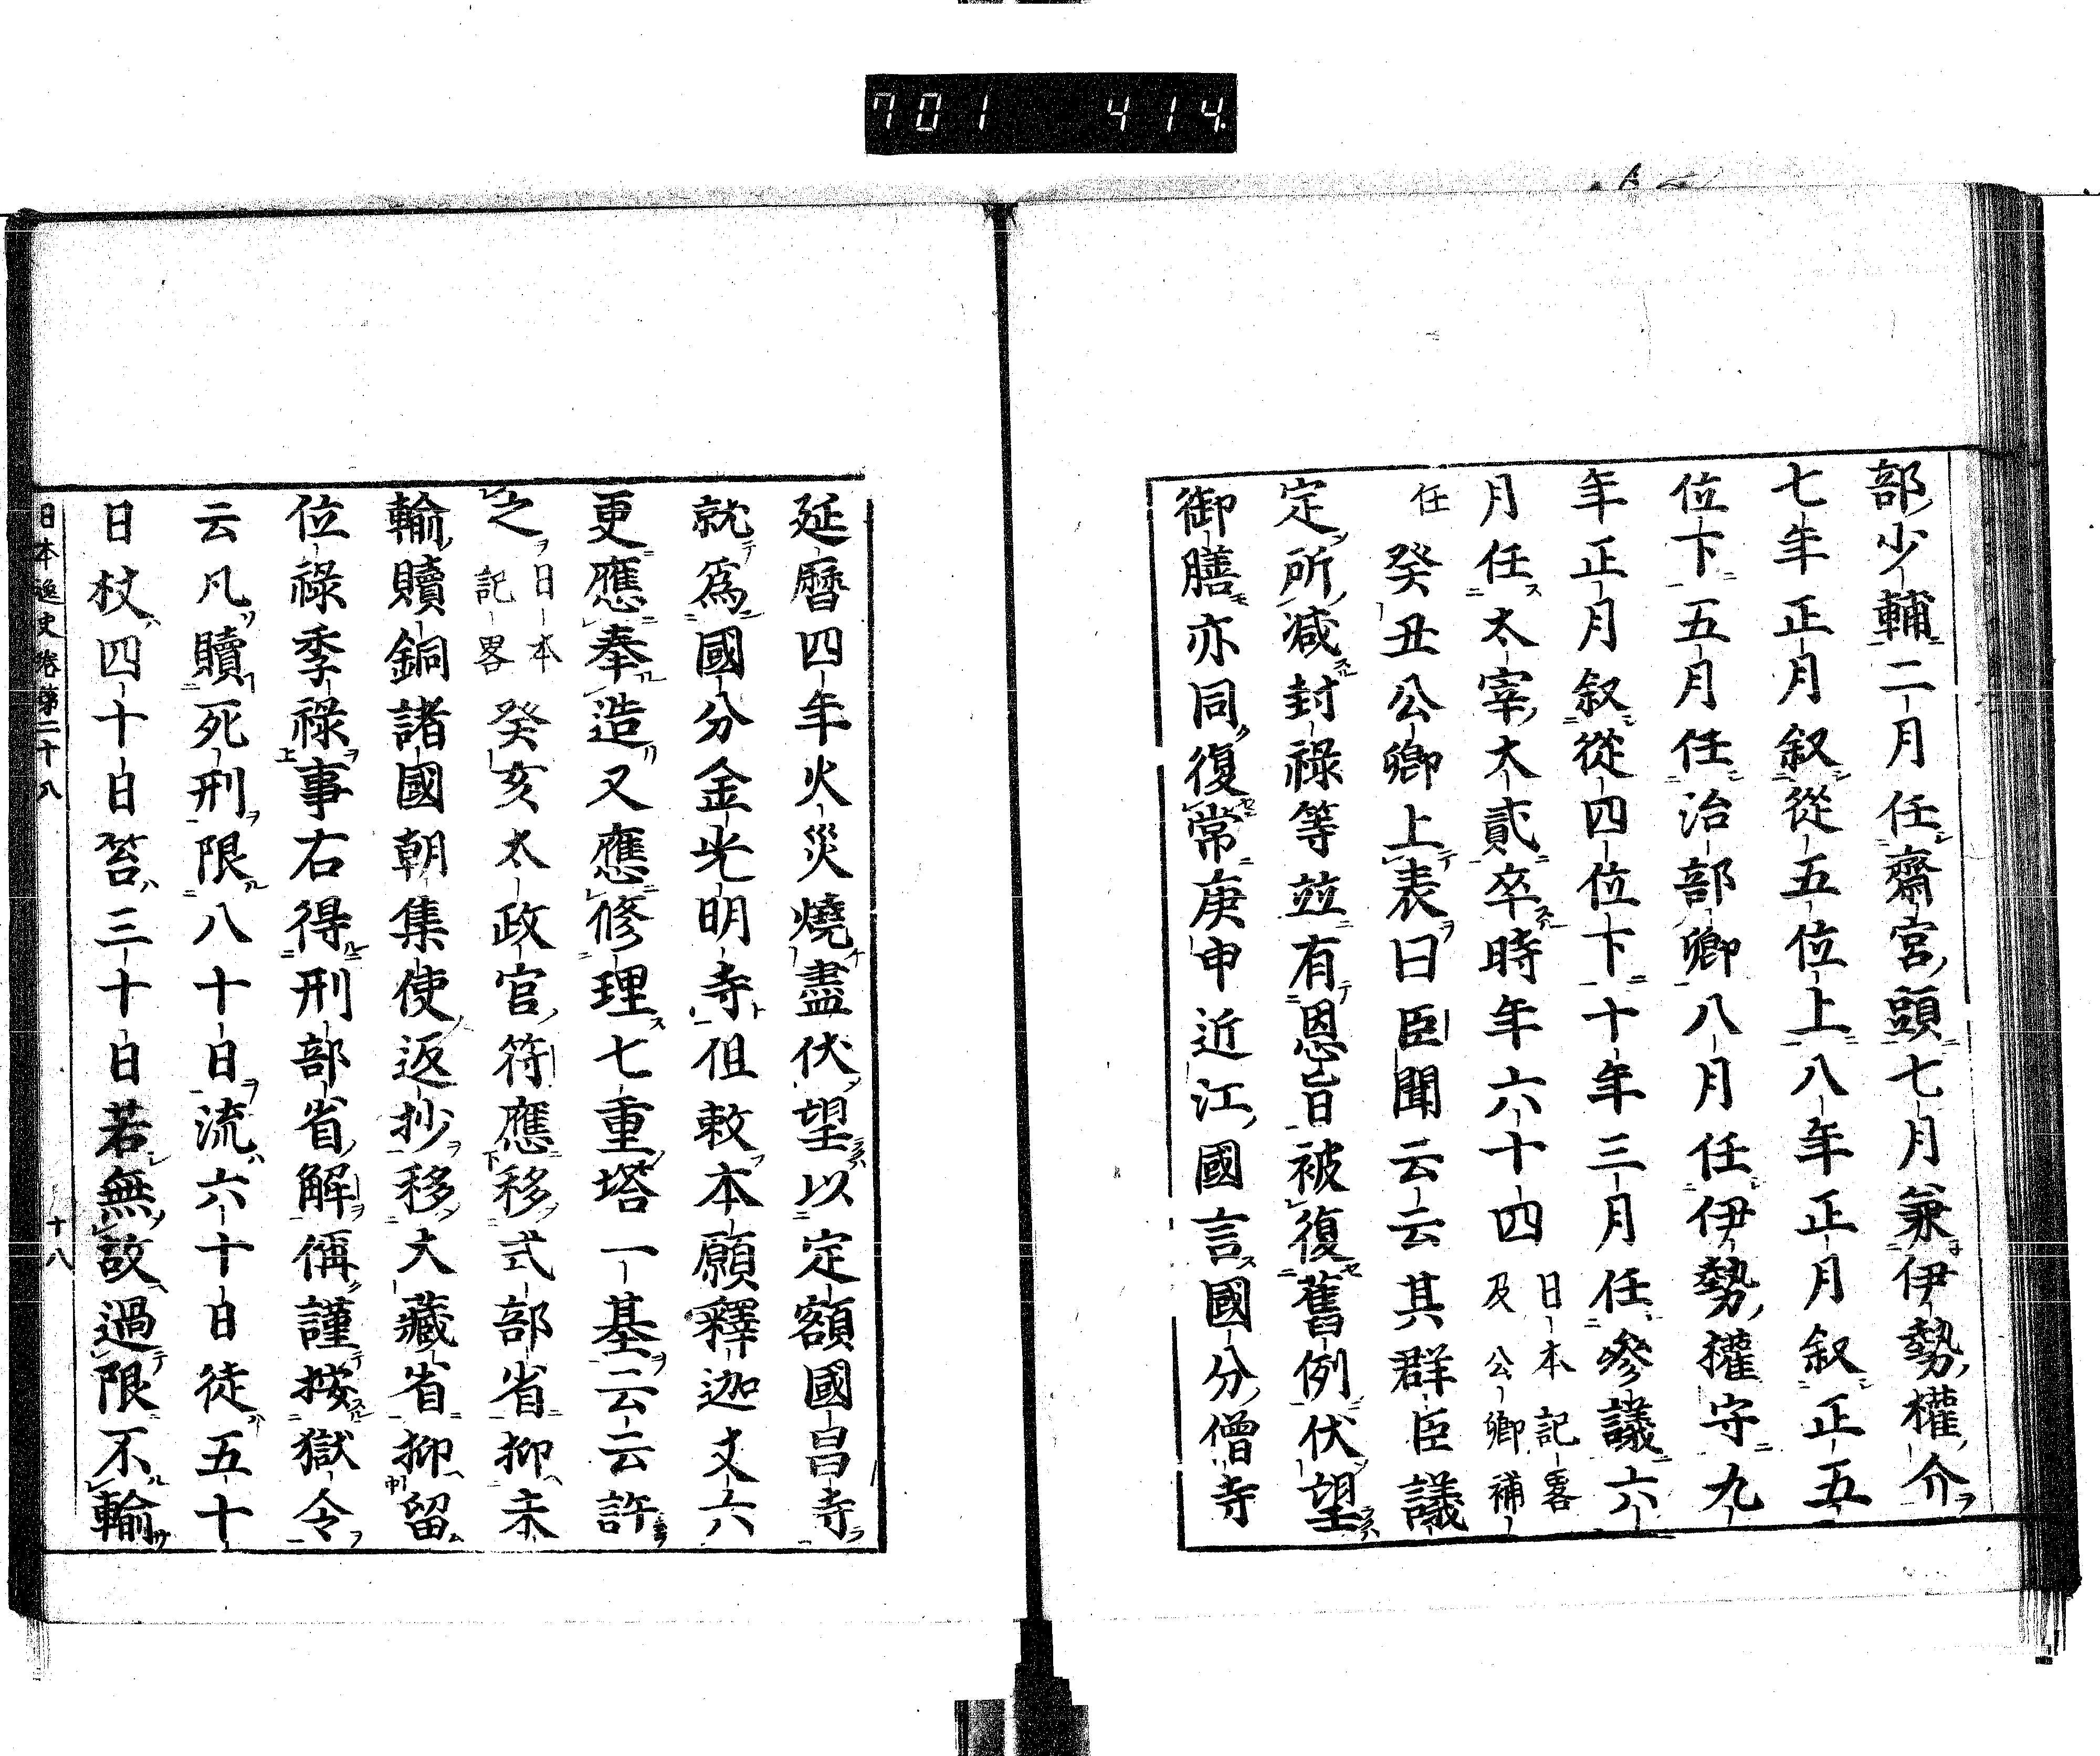 701 414
部少輔二月任齋宮頭七月兼伊勢權介
七年正月叙從五位上八年正月叙正五
位下五月任治部卿八月任伊勢權守九
年正月叙從四位下十年三月任參議六
月任太宰大貳卒時年六十四日本記畧及公卿補
任癸丑公卿上表曰臣聞云云其群臣議
定所減封祿等並有恩旨被復舊例伏望
御膳亦同復常庚申近江國言國分僧寺
延曆四年火災燒盡伏望以定額國昌寺
就爲國分金光明寺但敕本願釋迦丈六
更應奉造又應修理七重塔一基云云許
之日本記畧癸亥太政官符應移式部省抑未
輸贖銅諸國朝集使返抄移大藏省抑留
位祿季祿事右得刑部省解偁謹按獄令
云凡贖死刑限八十日流六十日徒五十
日杖四十日笞三十日若無故過限不輸
日本逸史卷第二十八 十八